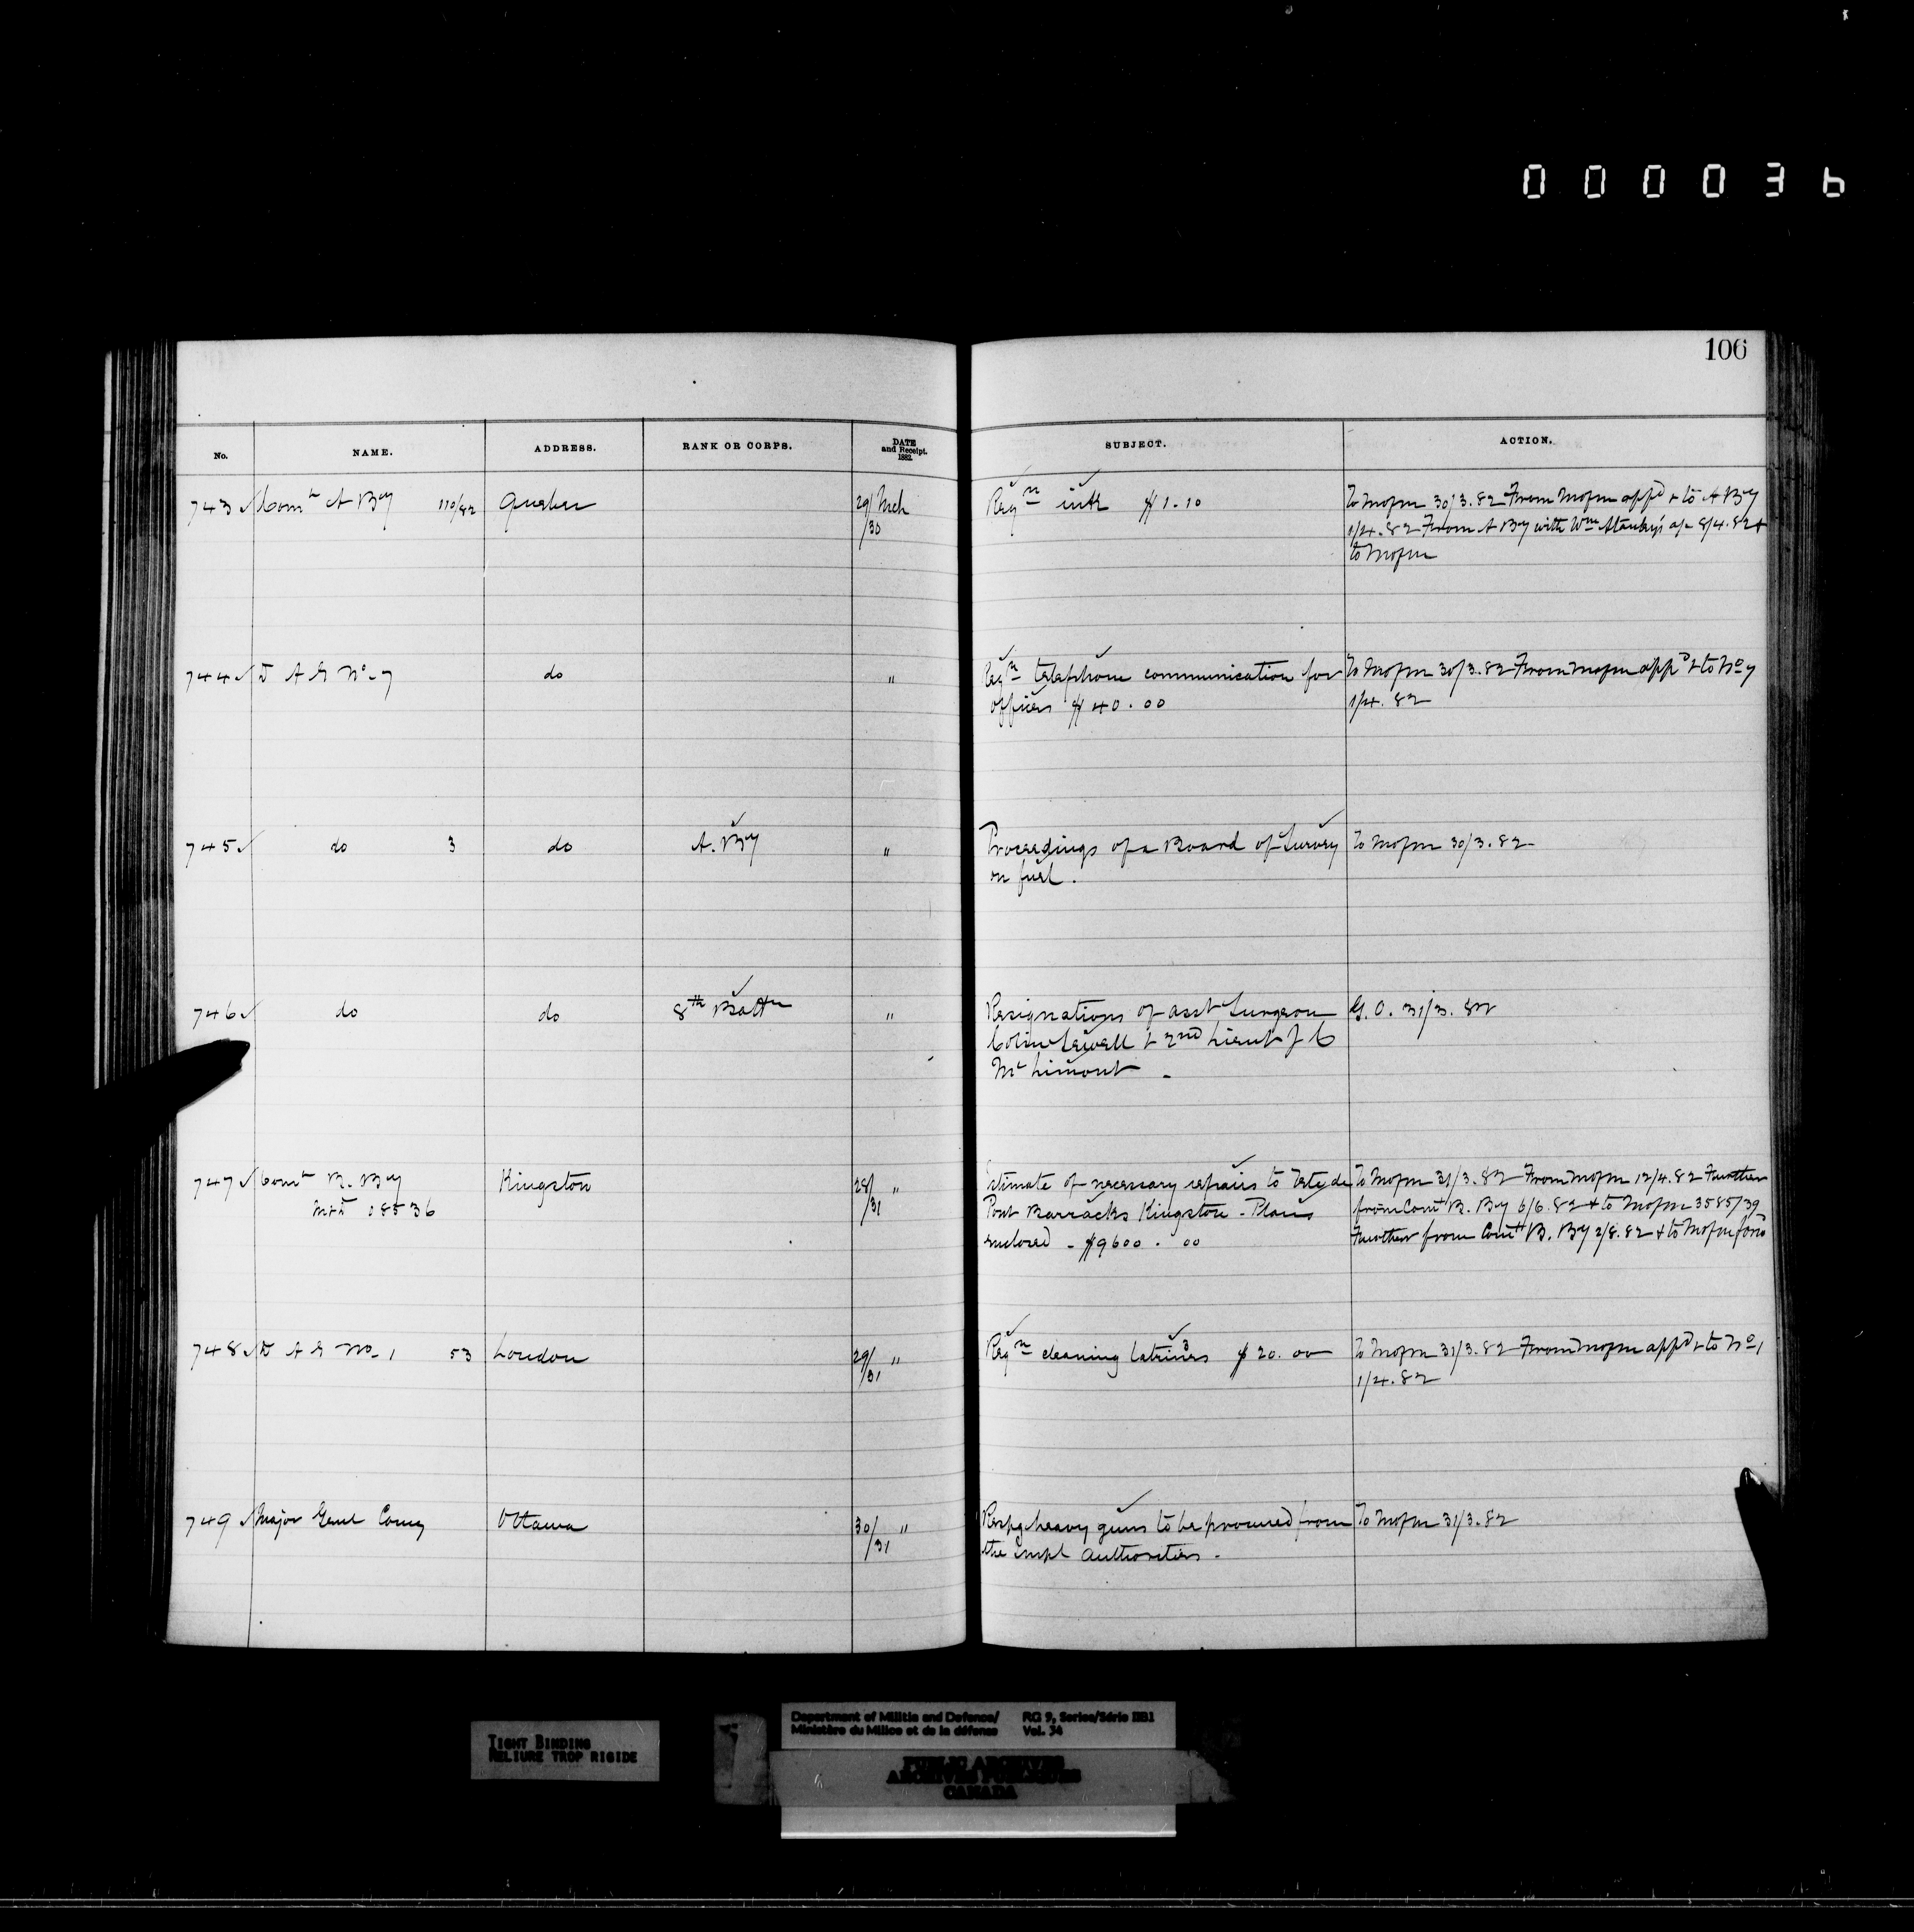 000036
106
No. NAME. ADDRESS. RANK OR CORPS. DATE and Receipt. 1882. SUBJECT. ACTION.
743 Comt A By 110/82 Quebec 29/30 Mch Reqn ink $1.10 To Mofm 30/3.82 From Mofm appd & to A By
1/4.82 From A By with Wm Stanley's a/c 8/4.82 &
to Mofm
744 D A G No 7 do " Reqn telephone communication for To Mofm 30/3.82 From Mofm appd & to No 7
officers $40.00 1/4.82
745 do 3 do A. By " Proceedings of a Board of Survey To Mofm 30/3.82
on fuel.
746 do do 8th Battn " Resignations of asst Surgeon G.O. 31/3.82
Colin Sewell & 2nd Lieut J C
Mc Limont -
747 Comt B. By Kingston 28/31 " Estimate of necessary repairs to Tete de To Mofm 31/3.82 From Mofm 12/4.82 Further
08536 Pont Barracks Kingston - Plans from Comt B. By 6/6.82 & to Mofm 3585/39
enclosed - $9600.00 Further from Comt B. By 2/8.82 & to Mofm
748 D A G No 1 53 London 29/31 " Reqn cleaning latrines $20.00 To Mofm 31/3.82 From Mofm appd & to No 1
1/4.82
749 Major Genl Comg Ottawa 30/31 " Respg heavy guns to be procured from To Mofm 31/3.82
the Impl authorities -
TIGHT BINDING
RELIURE TROP RIGIDE
Department of Militia and Defence/ RG 9, Series/Série IIB1
Ministère du Milice et de la défense Vol. 34
PUBLIC ARCHIVES
ARCHIVES PUBLIQUES
CANADA